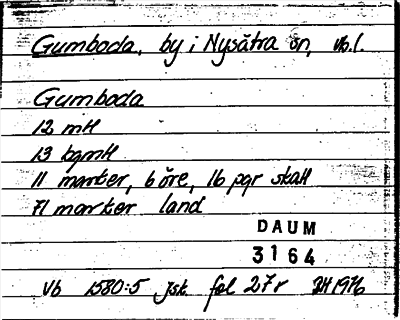 Gumboda, by i Nysätra sn, vb.l.
Gumboda
12 mtl
13 bgmtl
11 marker, 6 öre, 16 pgr skatt
71 marker land
DAUM
3164
Vb 1580:5 Jsk. fol 27r 1976